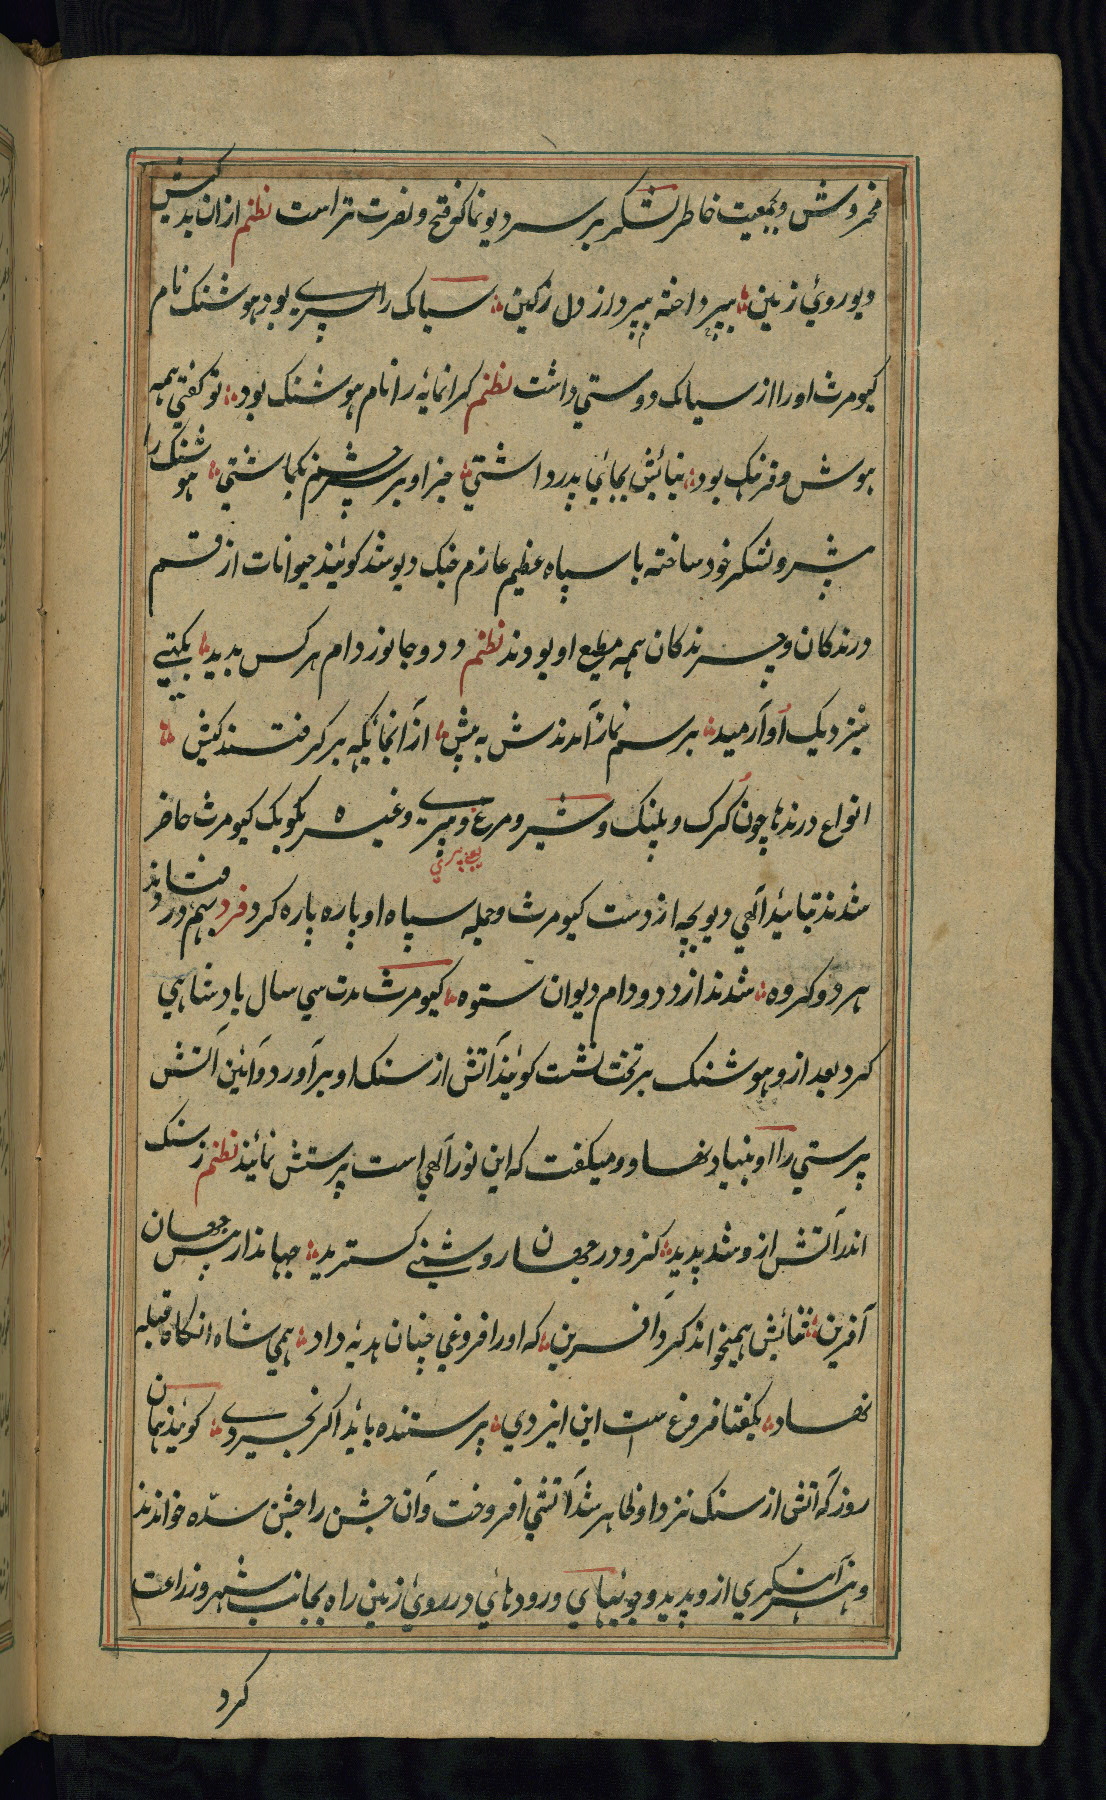 مخروش و بجمعیت خاطر لشکر بر سر دیو نما که فتح و نصرت تراست نظم ازان بدکیش
دیو روئ زمین بپرداخته بپرداز دل زکین سیامک را پسری بود هوشنک نام
کیومرث اورا از سیامک دوستی داشت نظم کرانمایه را نام هوشنک بود تو کفتی همه
هوش و فرهنک بود نیائش بجائی پدر داشتی جز او بر چشم نکماشتی هوشنک را
پیشرو لشکر خود ساخته با سپاه عظیم عازم جنک دیو شد کویند حیوانات از قسم
درندکان و چرندکان همه مطیع او بودند نظم دد و جانور دام هرکس بدید بکیتی
بنزدیک او آرمید برسم نماز آمدندش به پیش از آنجایکه بر کرفتند کیش
انواع درندها چون کرک و پلنک و شیر و مرغ و پری و غیره بکومک کیومرث حاضر
یعنی پری
شدند بتایید آلهی دیوبچه از دست کیومرث و جمله سپاه او پاره پاره کرد فرد بهم در فتادند
هر دو کروه شدند از دد و دام دیوان ستوه کیومرث مدت سی سال پادشاهی
کرد بعد ازو هوشنک بر تخت نشست کویند آتش از سنک او برآورد و آئین آتش
پرستی را او بنیاد نهاد و میکفت که این نور آلهی است پرستش نمائید نظم ز سنک
اندر آتش ازو شد پدید کزو در جهان روشنی کسترید جهاندار پیش جهان
آفرین نیائش همیخواند کرد آفرین که اورا فروغی چنان هدیه داد همی شاه انکاه قبله
نهاد بکفتا فروغ است این ایزدی پرستنده باید اکر بخردی کویند همان
روز که آتش از سنک نزد او ظاهر شد آتشی افروخت و آن جشن را جشن سده خواندند
و هنر آهنکری ازو پدید و جویهای و رودهائی در روئ زمین راه بجانب شهر و زراعت
کرد